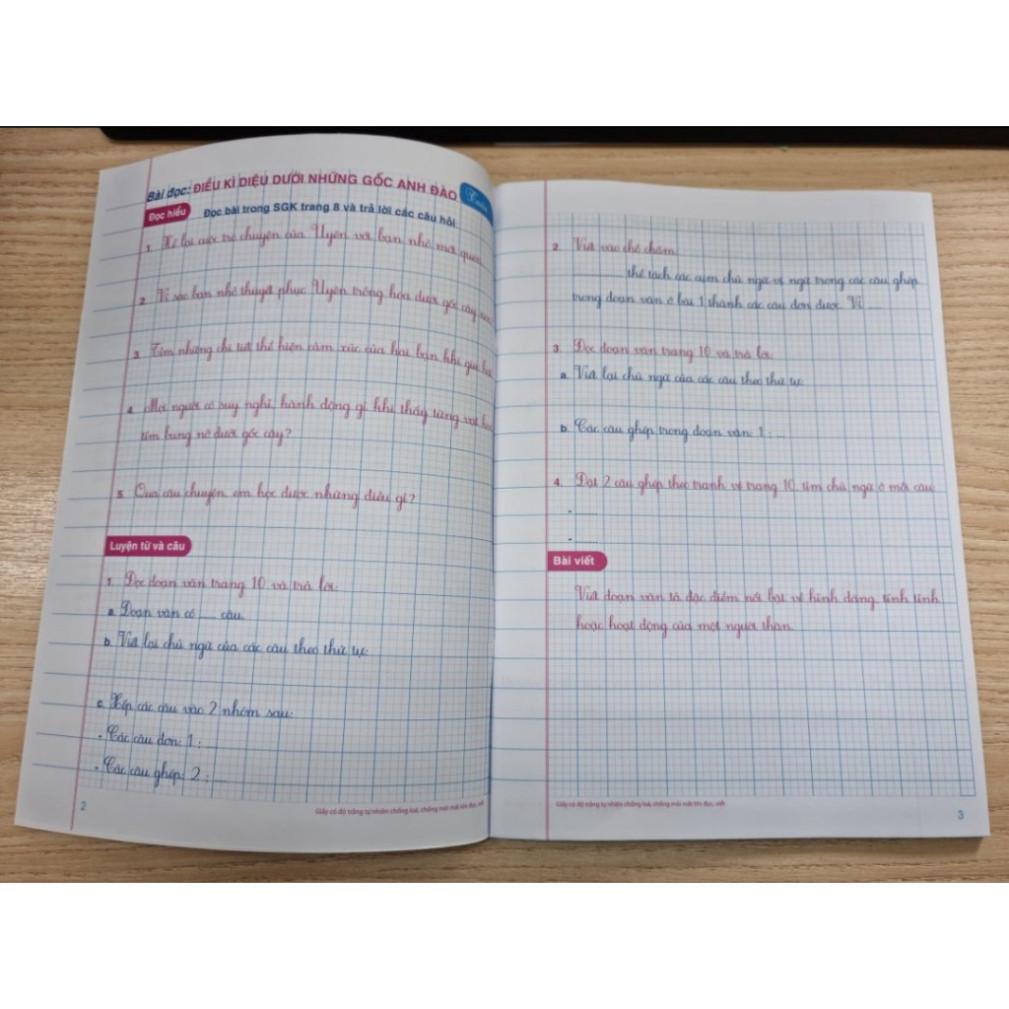 Bài đọc: ĐIỀU KÌ DIỆU DƯỚI NHỮNG GỐC ANH ĐÀO
Đọc hiểu Đọc bài trong SGK trang 8 và trả lời các câu hỏi
1. Kể lại cuộc trò chuyện của Uyên với bạn nhỏ mới quen
2. Vì sao bạn nhỏ thuyết phục Uyên trồng hoa dưới gốc cây
3. Tìm những chi tiết thể hiện cảm xúc của hai bạn khi
4. Mọi người có suy nghĩ, hành động gì khi thấy từng vạt hoa
tím bung nở dưới gốc cây?
5. Qua câu chuyện, em học được những điều gì?
Luyện từ và câu
1. Đọc đoạn văn trang 10 và trả lời:
a. Đoạn văn có ... câu.
b. Viết lại chủ ngữ của các câu theo thứ tự:
c. Xếp các câu vào 2 nhóm sau:
- Các câu đơn: 1 : ...
- Các câu ghép: 2 : ...
2
Giấy có độ trắng tự nhiên chống loá, chống mỏi mắt khi đọc, viết
2. Viết vào chỗ chấm:
thể tách các cụm chủ ngữ vị ngữ trong các câu ghép
trong đoạn văn ở bài 1 thành các câu đơn được. Vì ...
3. Đọc đoạn văn trang 10 và trả lời:
a. Viết lại chủ ngữ của các câu theo thứ tự:
b. Các câu ghép trong đoạn văn: 1 : ...
4. Đặt 2 câu ghép theo tranh vẽ trang 10, tìm chủ ngữ ở mỗi câu:
- ......
- ......
Bài viết
Viết đoạn văn tả đặc điểm nổi bật về hình dáng, tính tình
hoặc hoạt động của một người thân.
Giấy có độ trắng tự nhiên chống loá, chống mỏi mắt khi đọc, viết
3